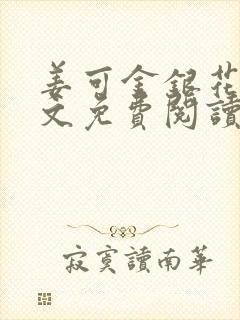 姜可金銀花
文免費閱讀
寂寞讀南華